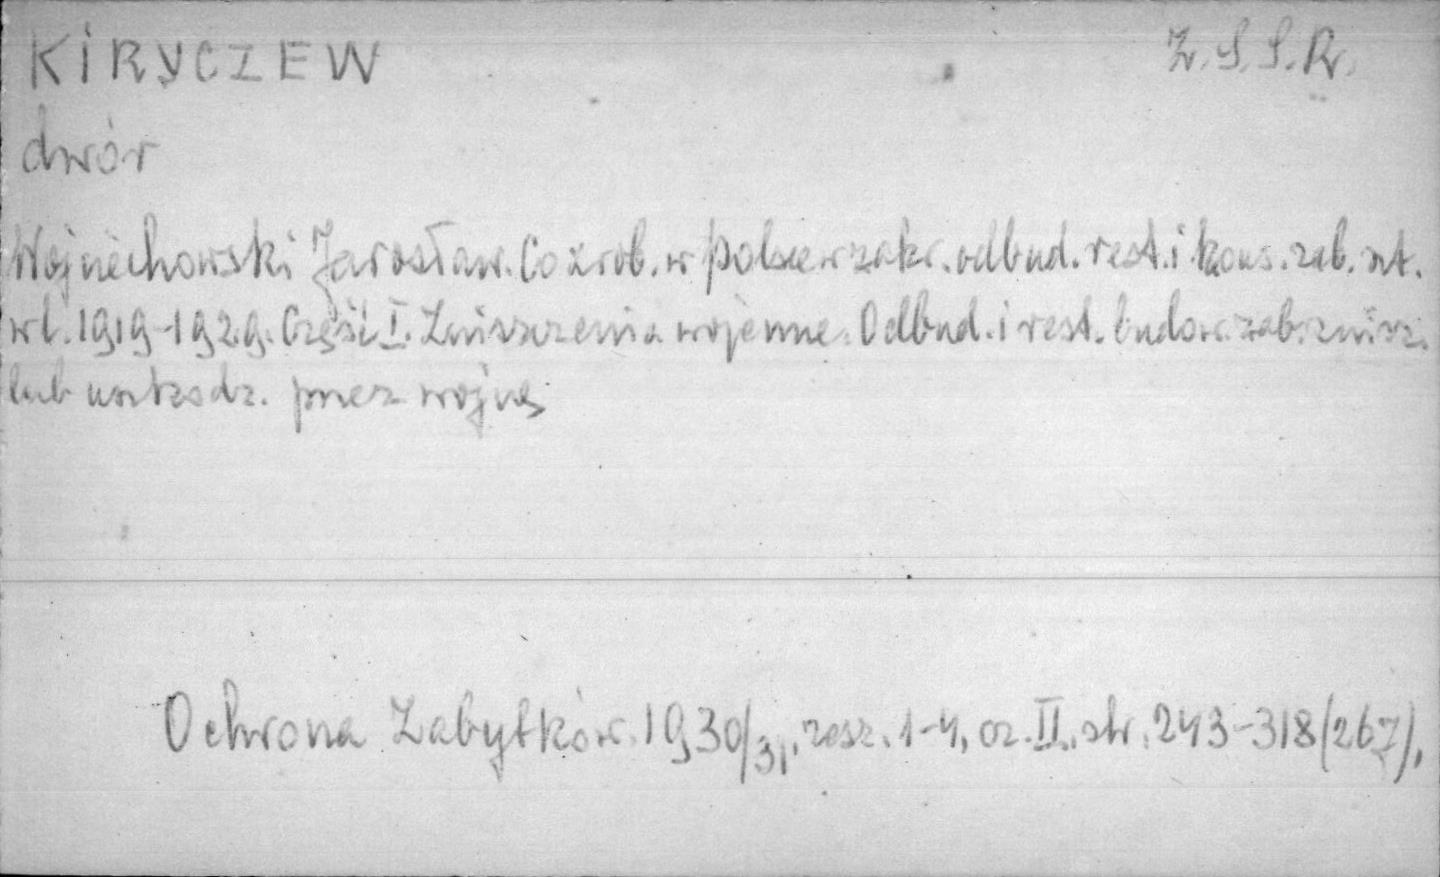 KIRYCZEW Z.S.S.R.
dwór
Wojciechowski Jarosław. Co zrob. w Polsce w zakr. odbud. rest. i kons. zab. szt.
w l. 1919-1929. Część I. Zniszczenia wojenne. Odbud. i rest. budow. zab. zniszcz.
lub uszkodz. przez wojnę
Ochrona Zabytków. 1930/31, zesz. 1-4, cz. II, str. 243-318 (267),